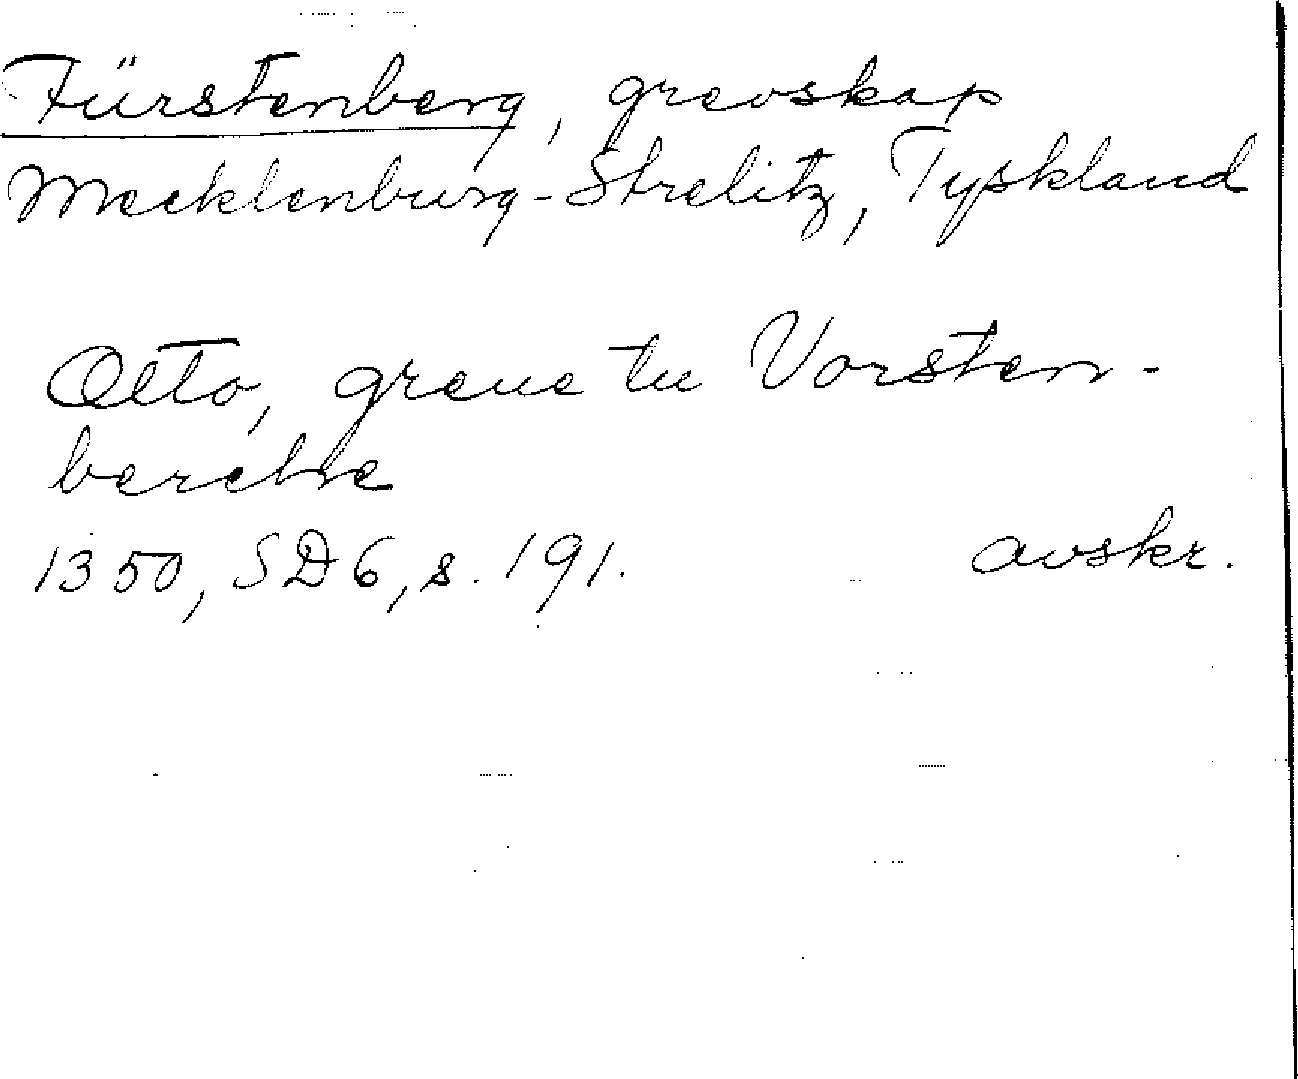 Fürstenberg, grevskap
Mecklenburg-Strelitz, Tyskland
Otto, greue tu Vorsten-
berche
1350, SD6, s. 191. avskr.